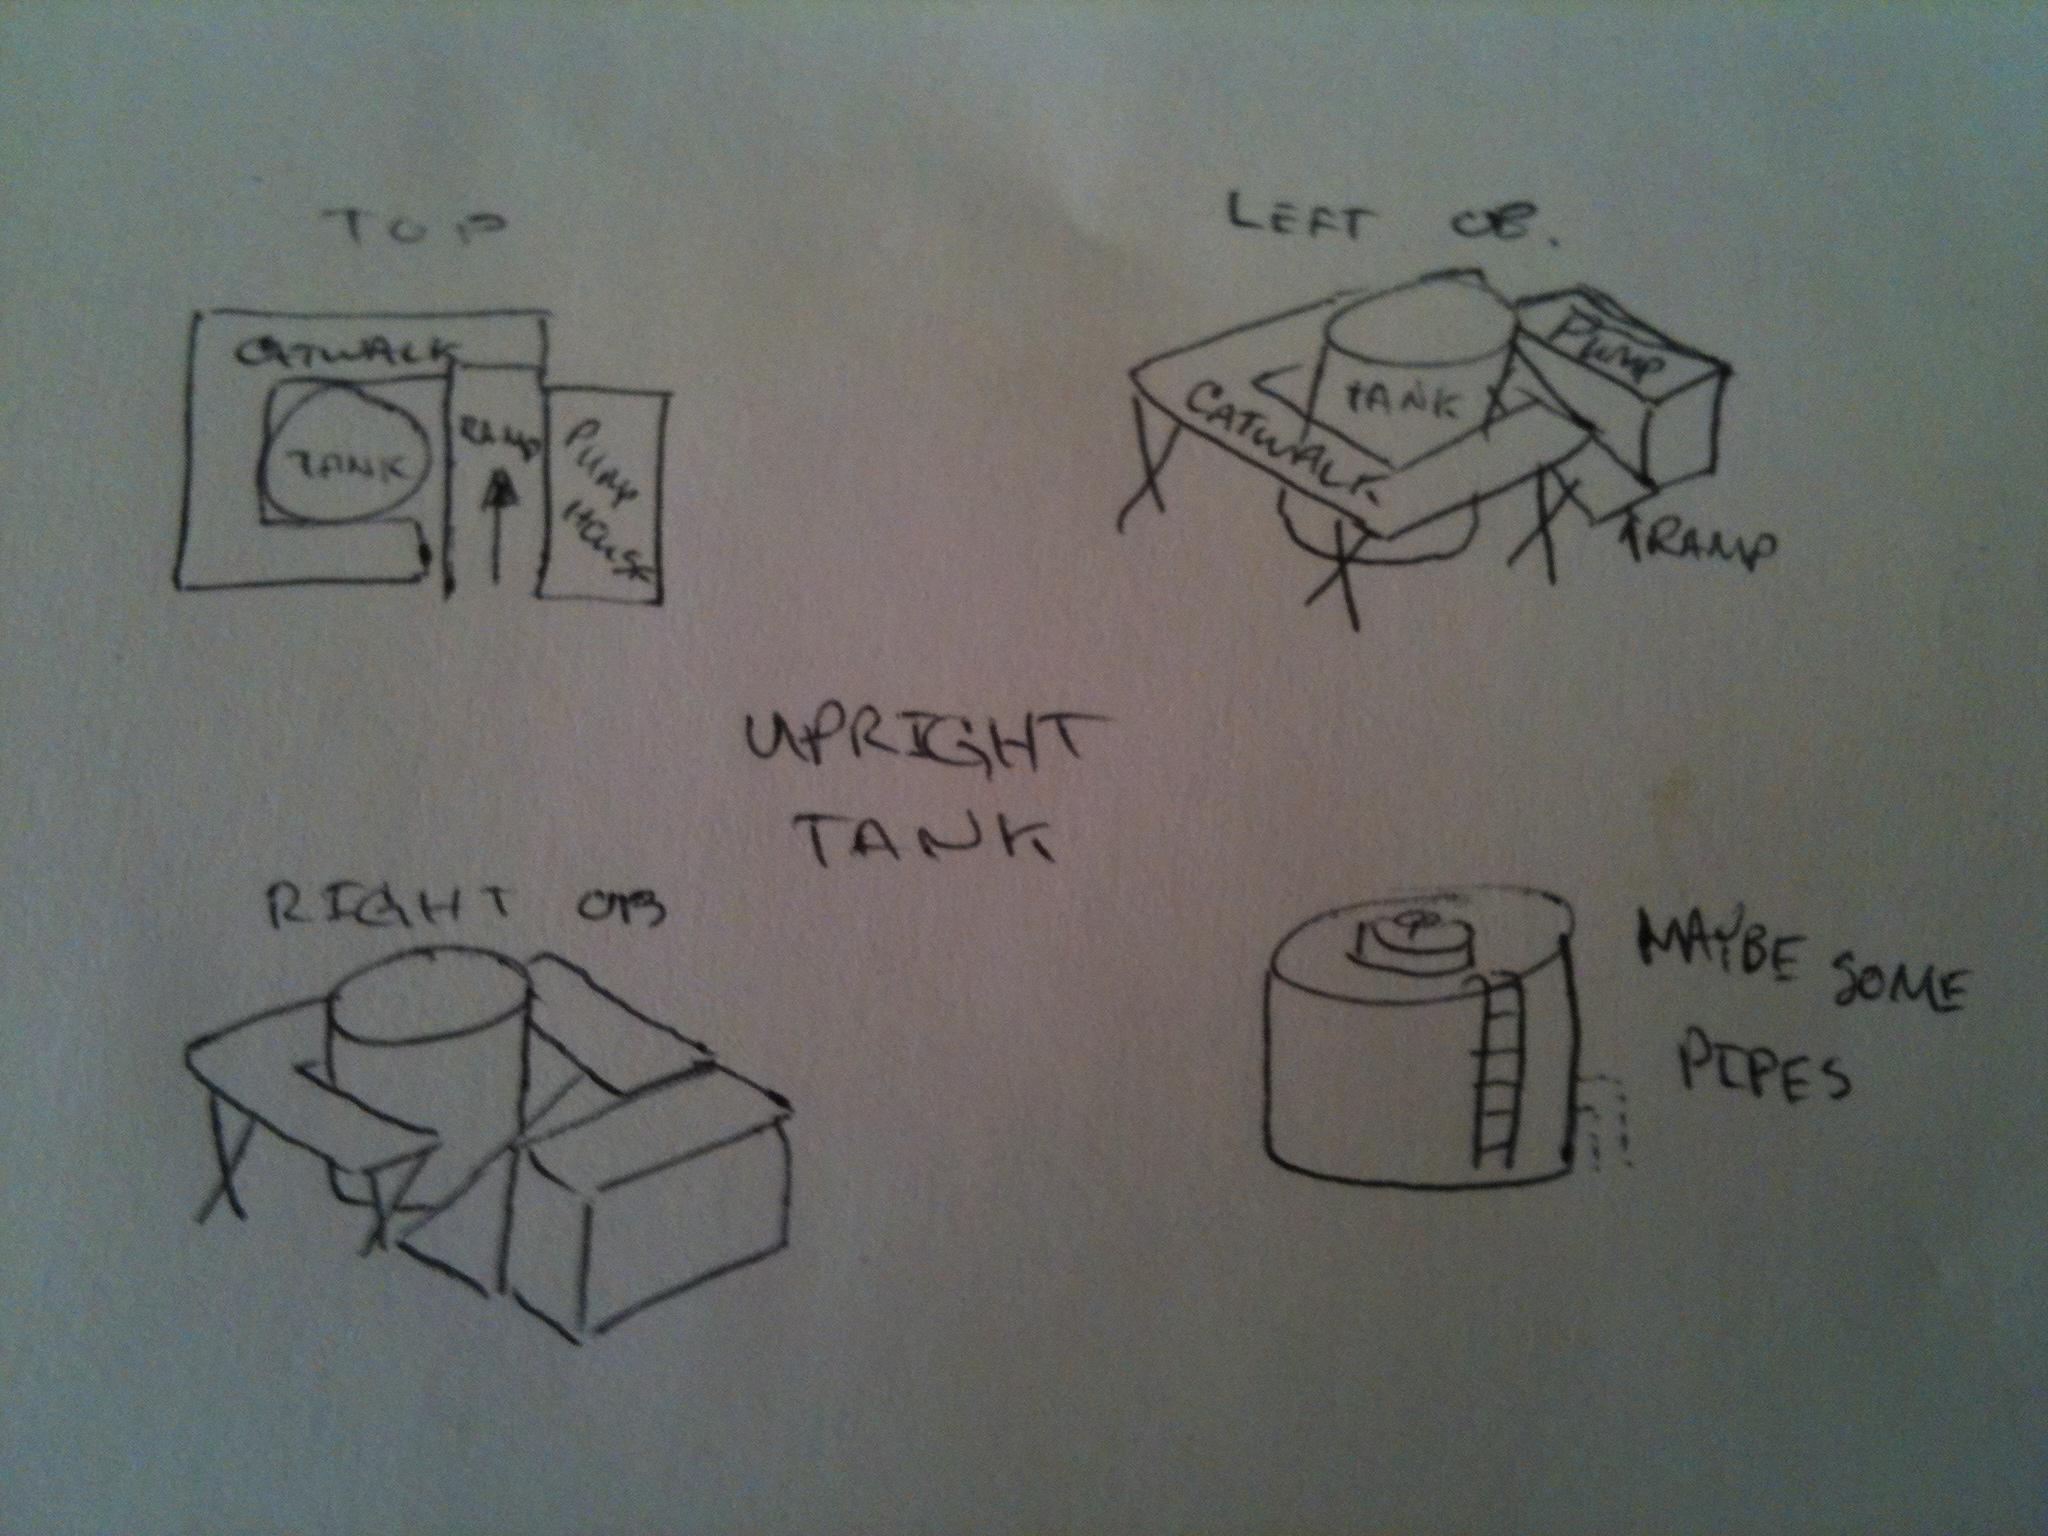 TOP
CATWALK
TANK
RAMP
PUMP
HOUSE
LEFT OB.
PUMP
TANK
CATWALK
RAMP
UPRIGHT
TANK
RIGHT OB
MAYBE SOME
PIPES